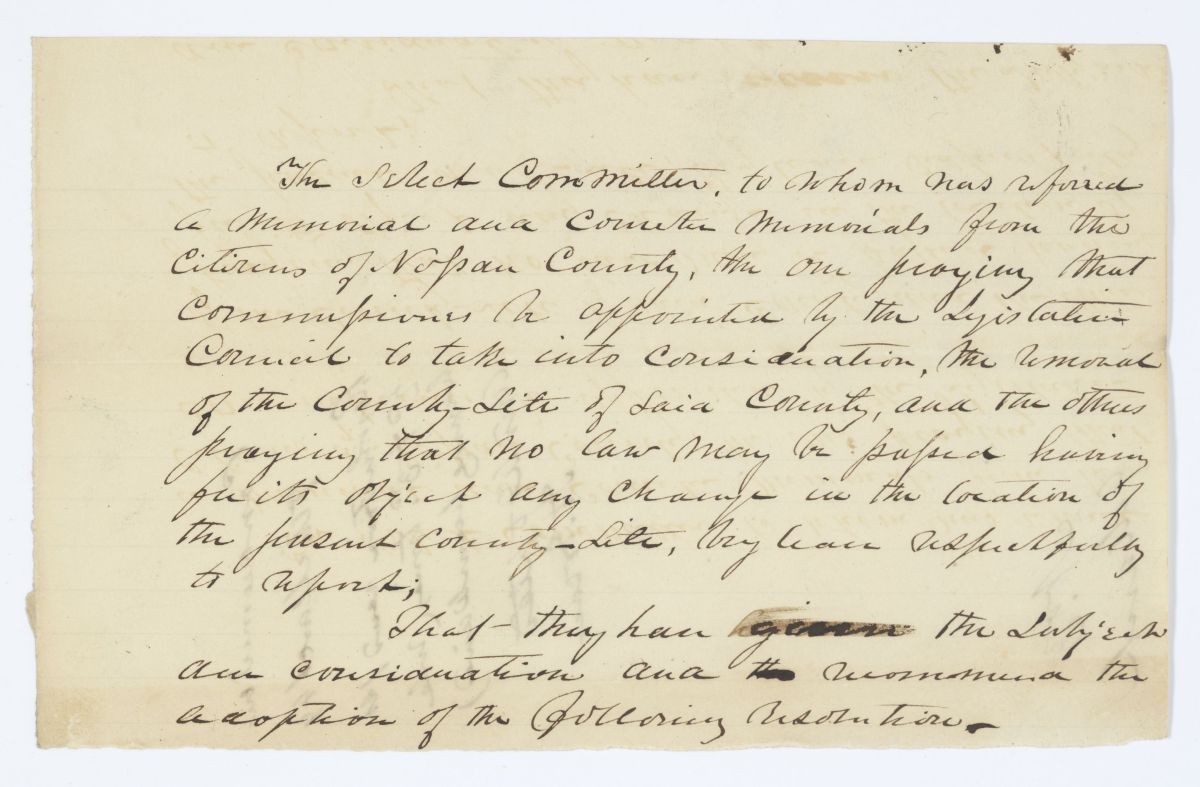 The Select Committee, to whom was referred
a Memorial and Counter Memorials from the
Citizens of Nassau County, the one praying that
Commissioners be appointed by the Legislative
Council to take into consideration, the removal
of the County-Site of said County, and the others
praying that no law may be passed having
for its object any change in the location of
the present county-Site, beg leave respectfully
to report;
That they have given the subject
due consideration and recommend the
adoption of the following resolution.